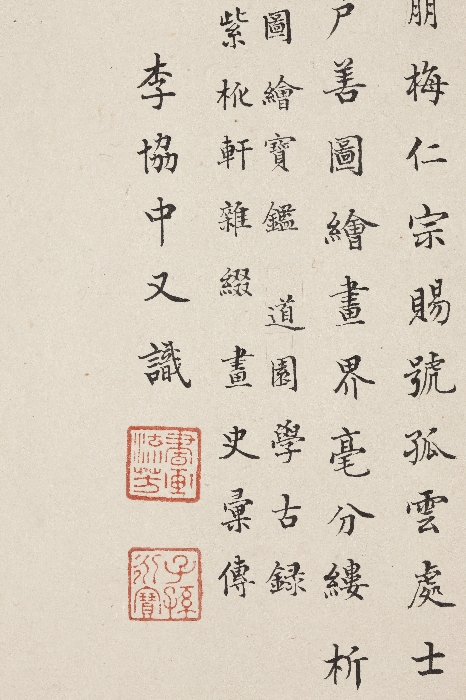 朋梅仁宗賜號孤雲處士
戶善圖繪畫界毫分縷析
圖繪寶鑑 道園學古録
紫桃軒雜綴 畫史彙傳
李協中又識
書畫流芳
子孫永寶